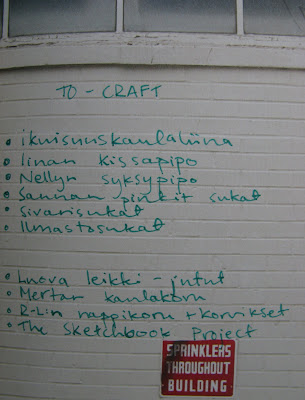 TO - CRAFT
• ikuisuuskaulaliina
• Iinan kissapipo
• Nellyn syksypipo
• Sannan pinkit sukat
• Sivarisukat
• Ilmastosukat
• Luova leikki - jutut
• Mertan kaulakoru
• R-L:n nappikoru + korvikset
• The Sketchbook Project
SPRINKLERS
THROUGHOUT
BUILDING